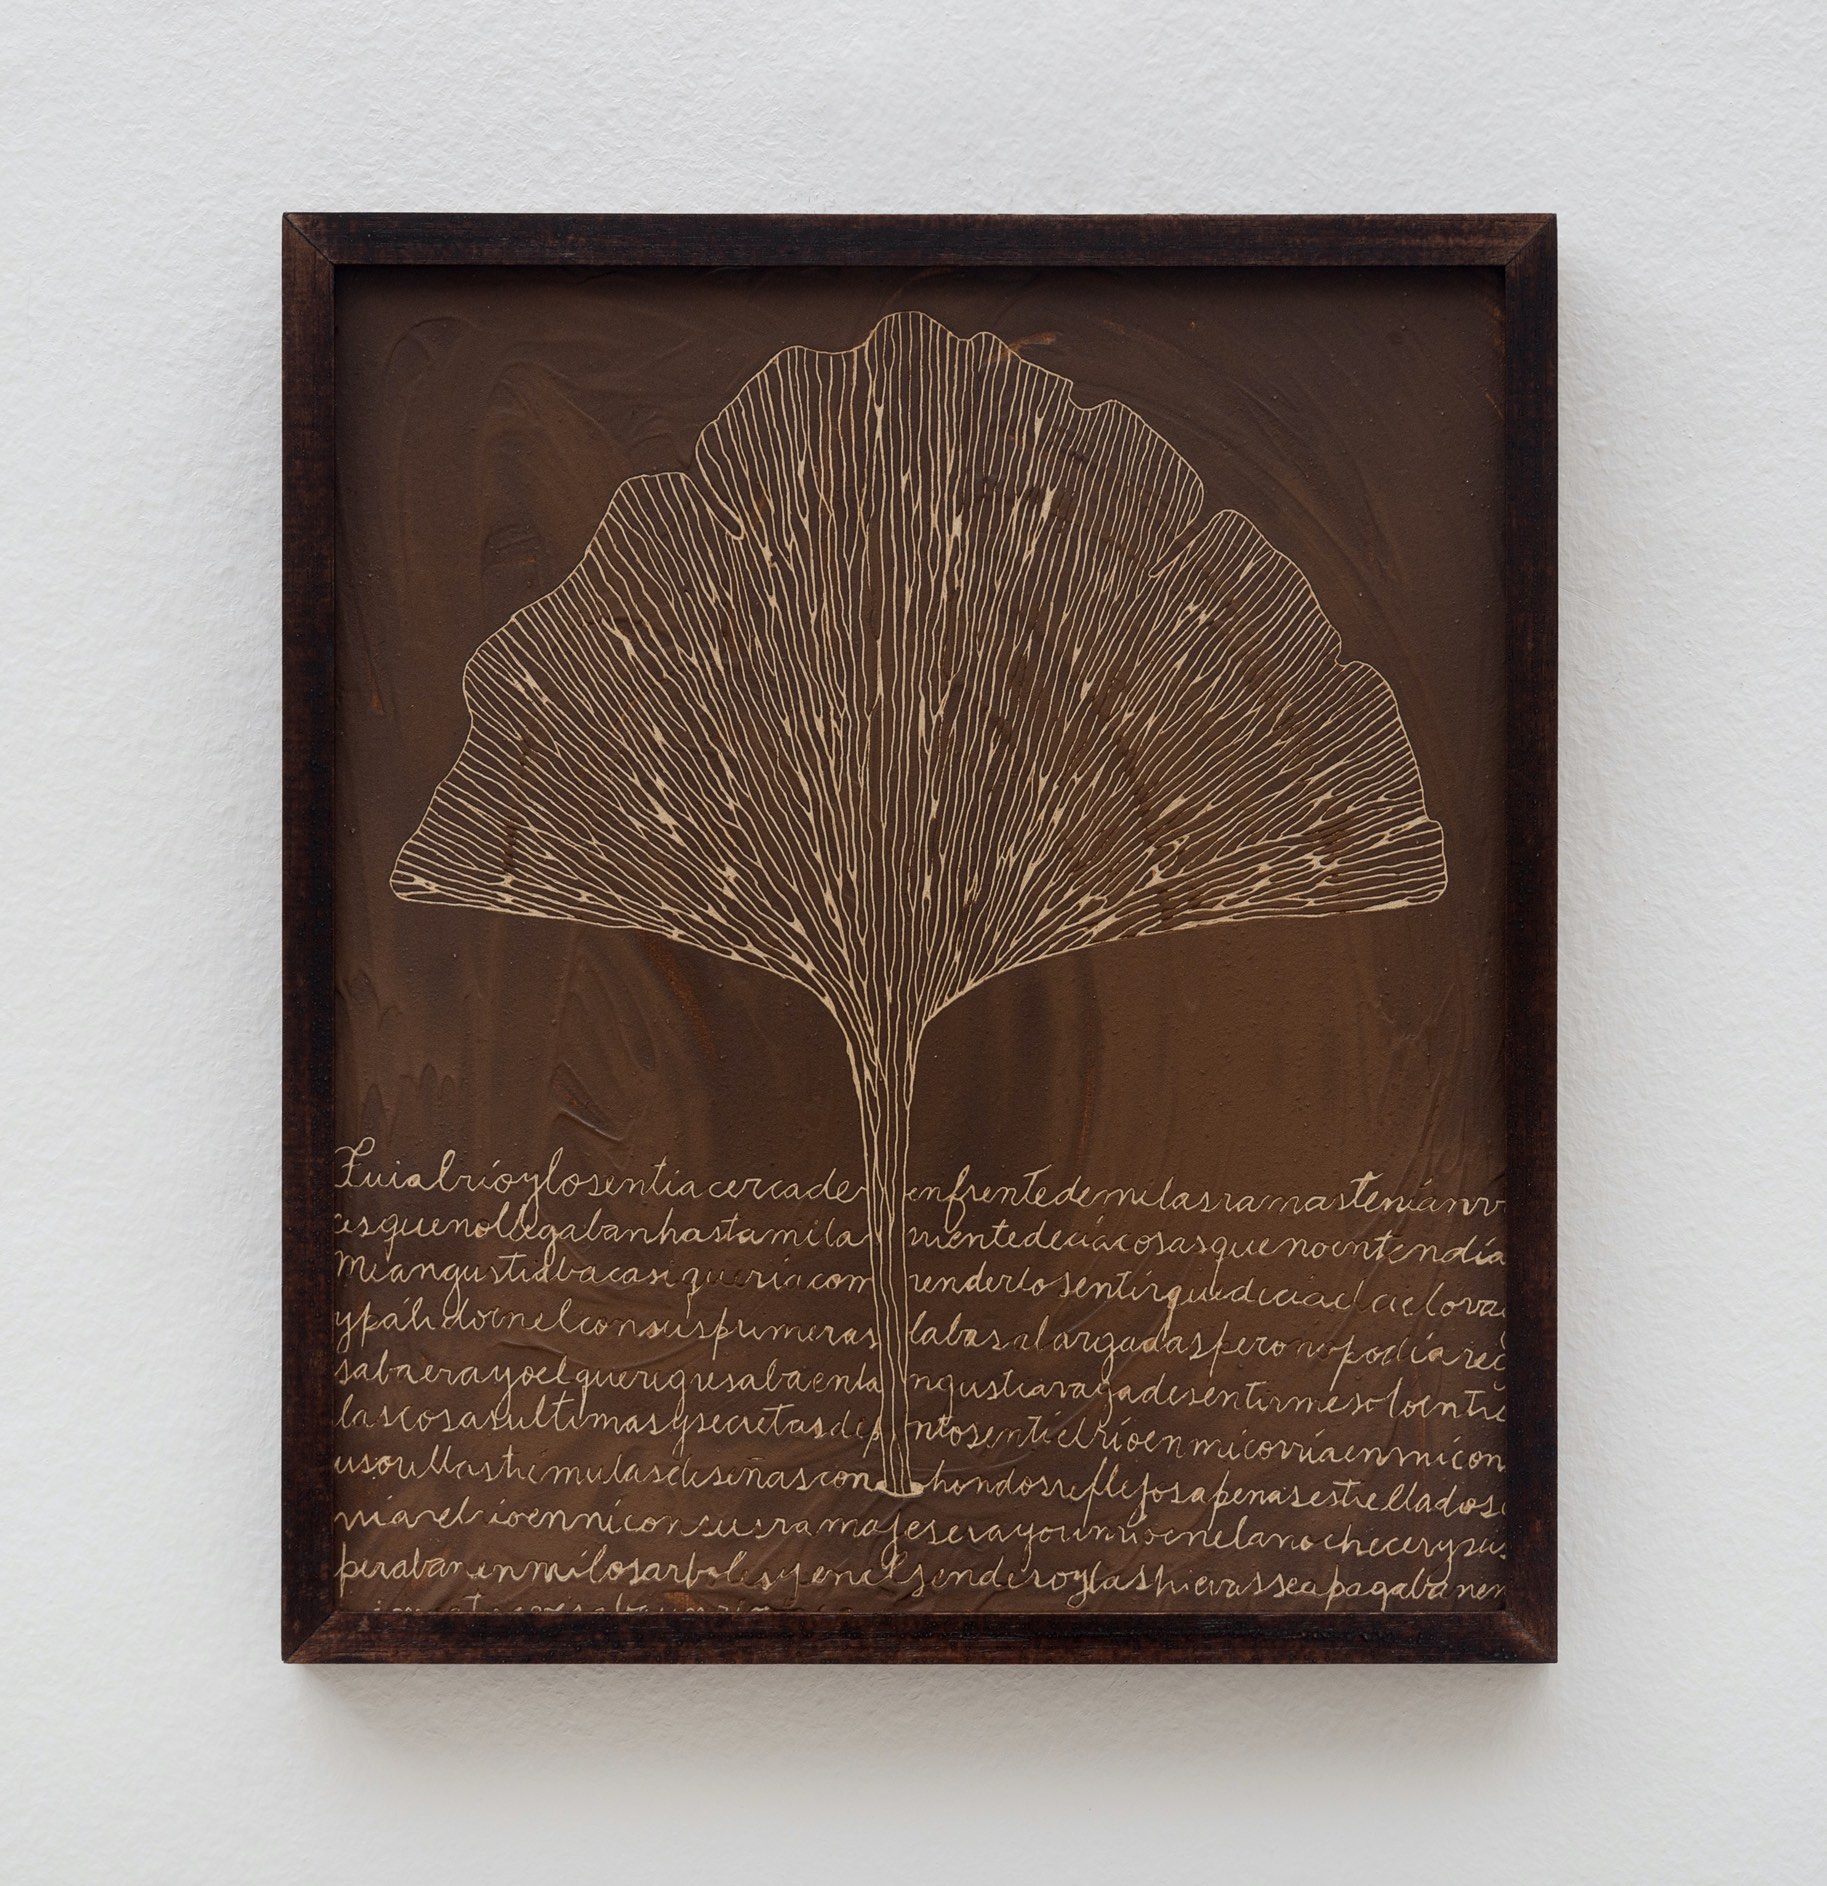 Fuialríoylosentíacercade enfrentedemilasramasteníanv
cesquenollegabanhastamila rrientedecíacosasquenoentendía
Meangustiabacasiqueríacom renderlosentirquedecíaelcielova
ypálidoenelconsusprimeras labasalargadasperonopodíareg
sabaerayoelqueregresabaenla ngustiavagadesentirmesoloentre
lascosasultimasysecretasdep ntosentíelríoenmícorríaenmícon
usorillastrémulasdeseñascon hondosreflejosapenasestrelladosc
ríaelríoenmíconsusramajeserayounríoenelanochecerysus
perabanenmílosarbolesyenelsenderoylashierbasseapagabanen